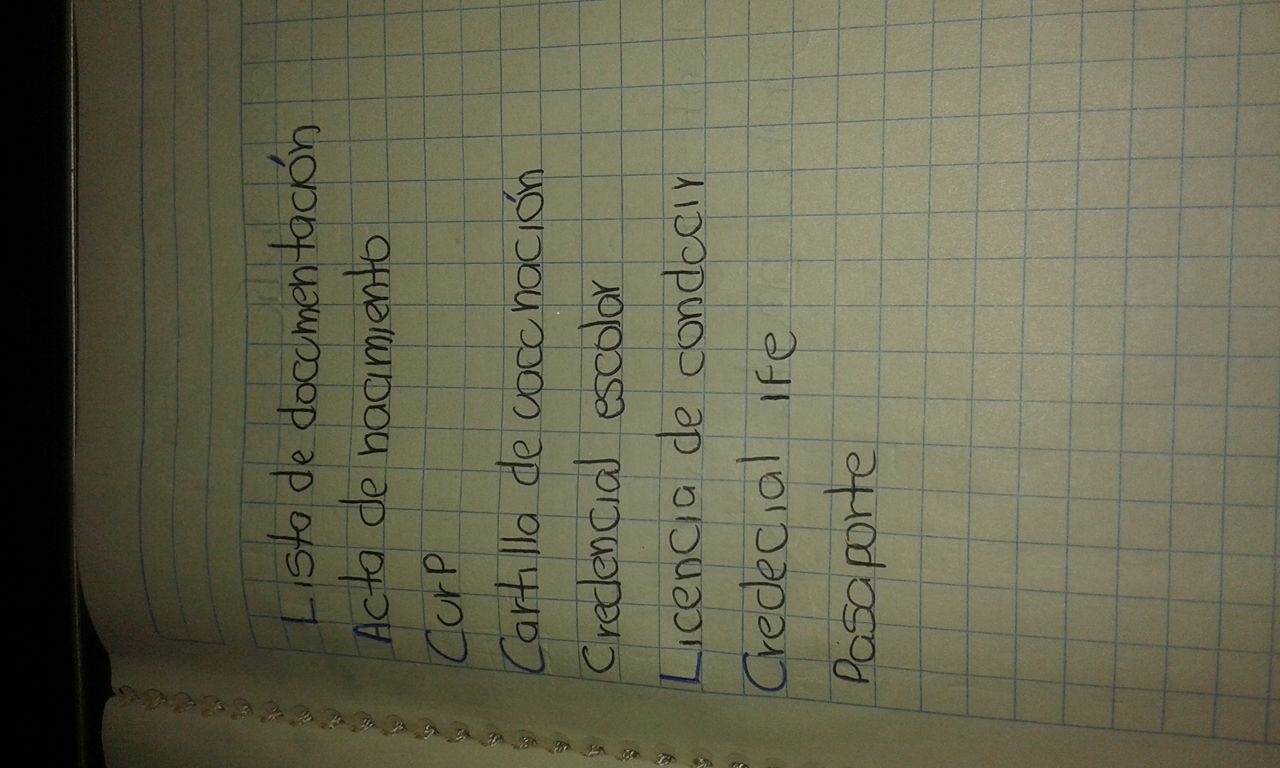 Lista de documentación
Acta de nacimiento
CurP
Cartilla de vaccnación
Credencial escolar
Licencia de conducir
Credecial IFe
Pasaporte